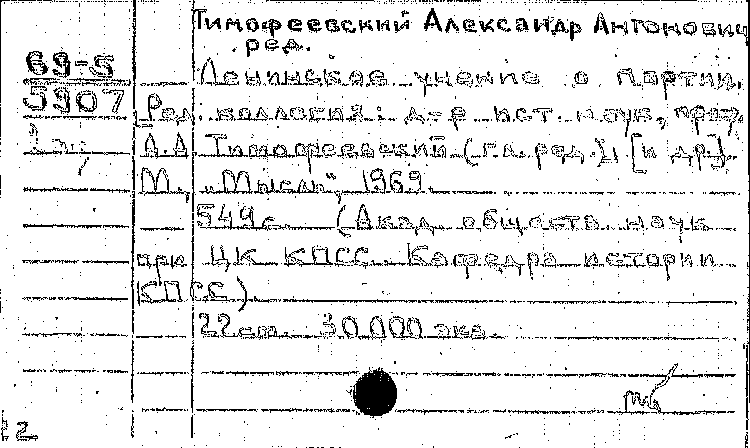 Тимофеевский Александр Антонович
ред.
69-5
5907
Ленинское учение о партии.
[Ред. коллегия: д-р ист. наук, проф.
А.А Тимофеевский (гл. ред.), [и др].
М., "Мысль", 1969.
549 с. (Акад. обществ. наук
при ЦК КПСС. Кафедра истории
КПСС).
22 см. 30.000 экз.
22